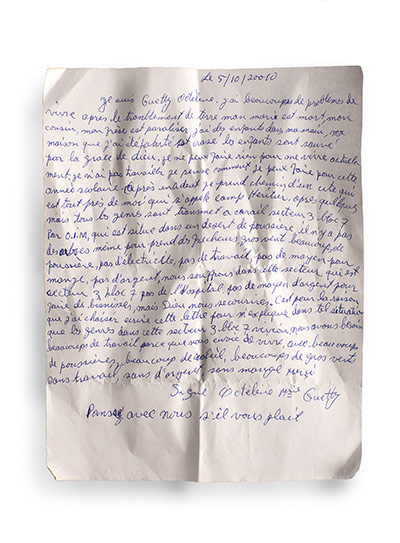 Le 5/10/20010
Je suis Guetty Octélène. j'ai beaucoups de problème de
vivre après de tramblement de terre mon marie est mort, mon
cousin, mon frèse est paralisé, j'ai des enfants dans ma main, ma
maison que j'ai d'abité est crasé les enfants sont sauvé
par la grâce de dieu, je ne peux faire rien pour me vivre actuelle
ment, je n'ai pas travaille je pense comment je peux faire pour cette
année scolaire. après un deut je prend chemin d'une cité qui
est tout près de moi qui s'appele camp Héritier, après quelques
mais tous les genrs sont transmet a corail secteur 3. bloc 7
Par O.I.M, qui est situe dans un désert de poussière, il n'y a pas
des arbres même pour prend de fraicheur gros vent beaucoup de
poussière, pas d'électricité, pas de travail, pas de moyen pour
mange, pas d'argent, nous souffrons dans cette secteur qui est
secteur 3 bloc 7 pas de l'hospital pas de moyen d'argent pour
faire de bisnises, mais Dieu nous secourrire. C'est pour la raison
que j'ai chaiser écrire cette lettre pour m'expliqué dans tel situation
que les genres dans cette secteur 3 bloc 7 vivron, nous avons besoin
beaucoups de travail parce que nous envie de vivre, avec beaucoups
de poussières, beaucoup de soleil, beaucoups de gros vents
sans travail, sans d'argent, sans mangé merçi
Signé Octélène Guetty
Pansez avec nous s'il vous plait